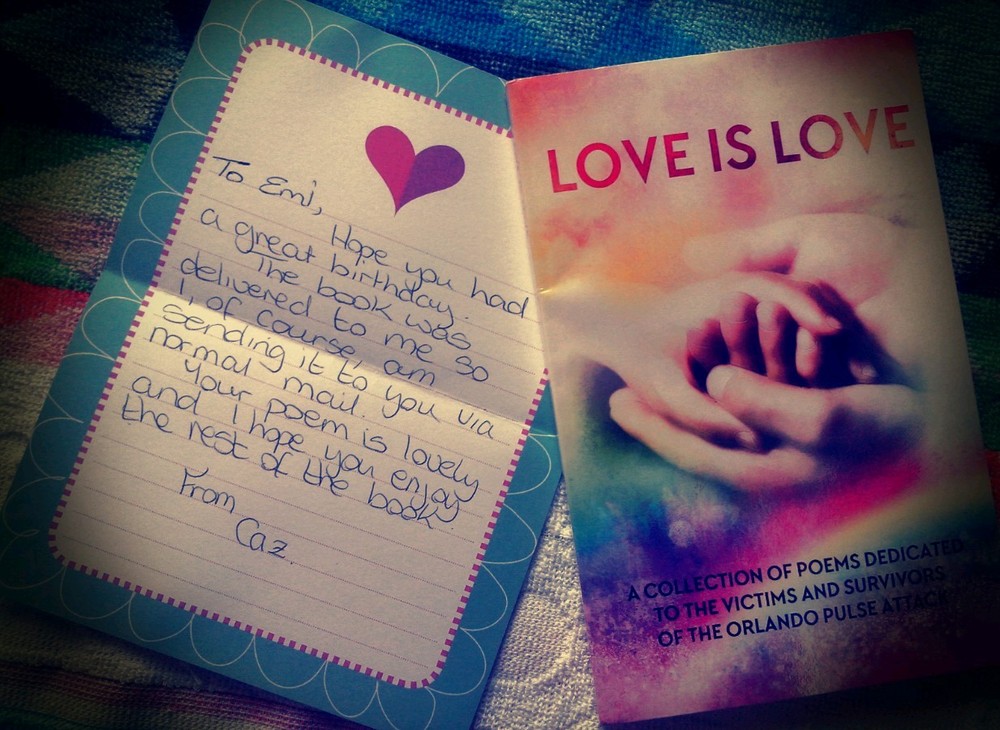 To Emi,
Hope you had
a great birthday.
The book was
delivered to me so
I, of course, am
sending it to you via
normal mail.
Your poem is lovely
and I hope you enjoy
the rest of the book
From
Caz.
LOVE IS LOVE
A COLLECTION OF POEMS DEDICATED
TO THE VICTIMS AND SURVIVORS
OF THE ORLANDO PULSE ATTACK